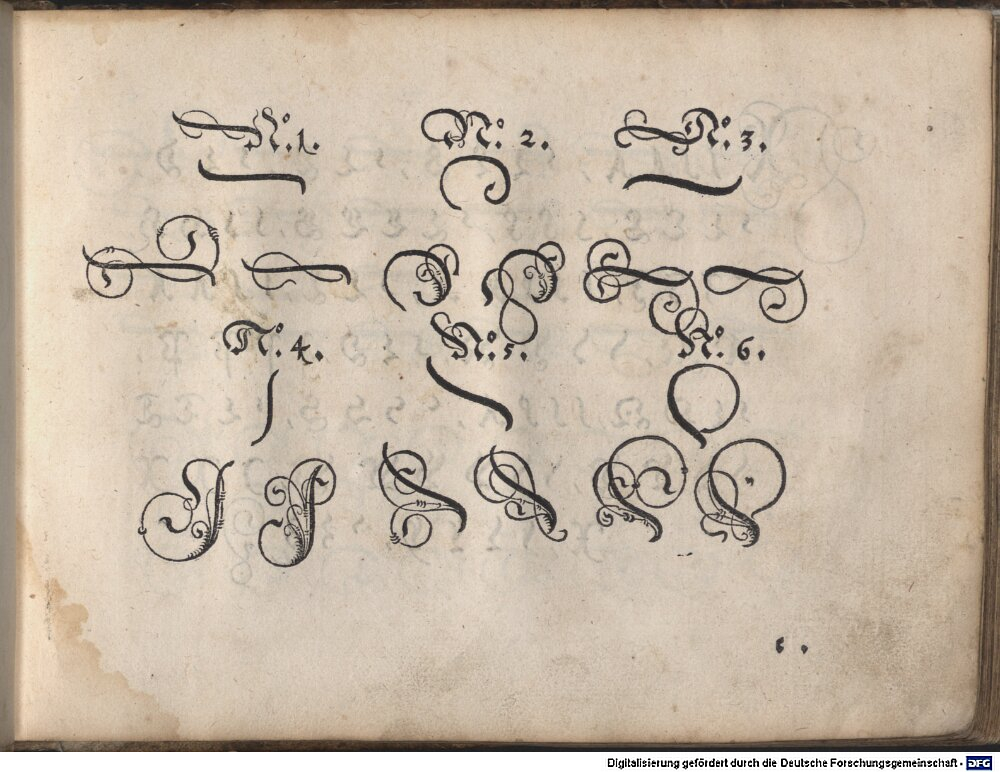 Nº. 1.
Nº. 2.
Nº. 3.
Nº. 4.
Nº. 5.
Nº. 6.
Digitalisierung gefördert durch die Deutsche Forschungsgemeinschaft - DFG